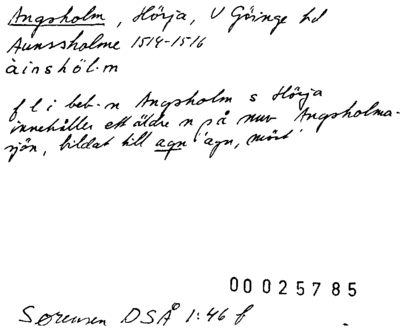 Angsholm, Hörja, V Göinge hd
Aunssholme 1514-1516
àinshöl·m
f l i beb-n Angsholm s Hörja
innehåller ett äldre n på nuv Angsholma-
sjön, bildat till agn 'agn, mört'
00025785
Sørensen DSÅ 1:46 f